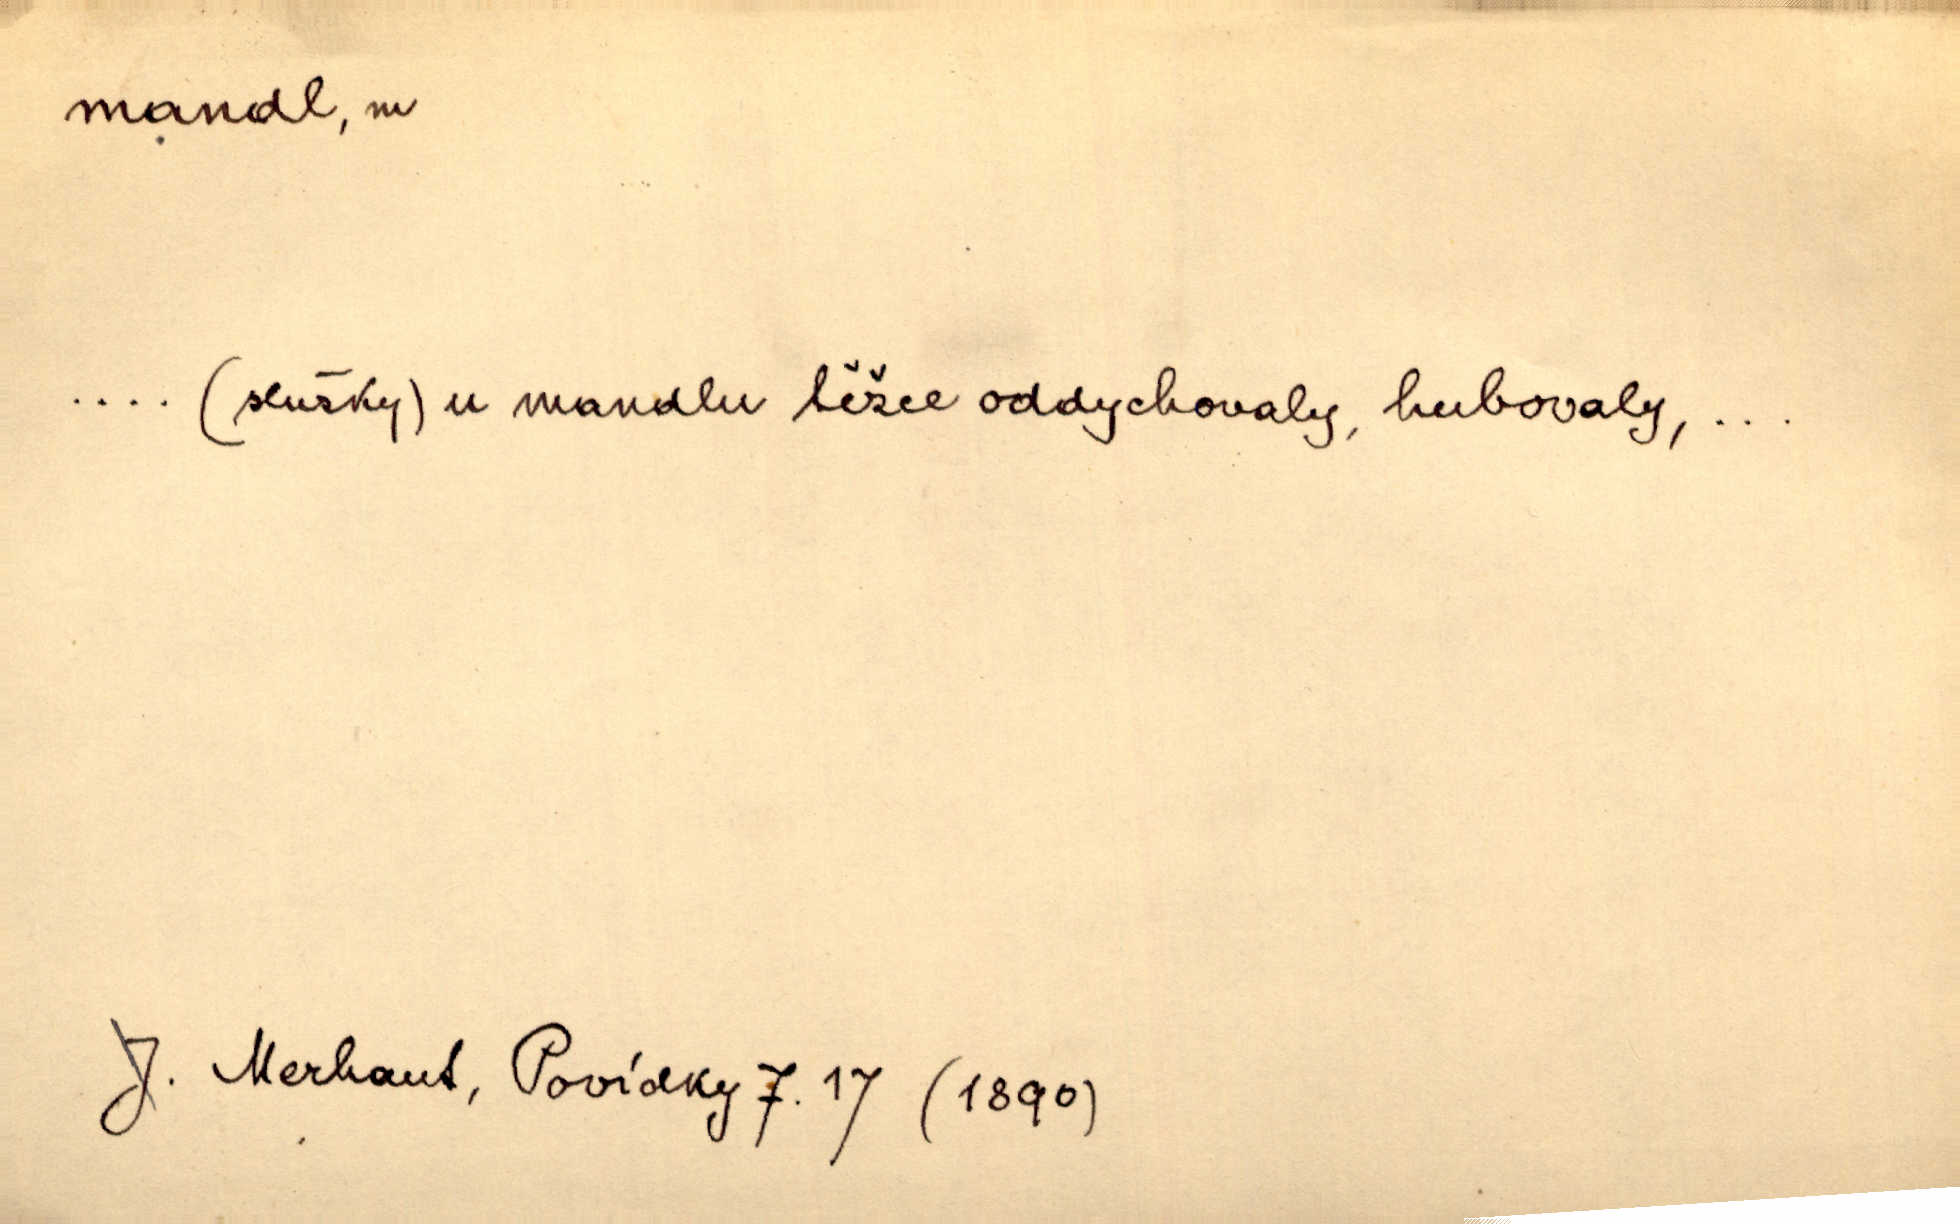 mandl, m
.... (služky) u mandlu těžce oddychovaly, hubovaly, ...
J. Merhaut, Povídky 7. 17 (1890)